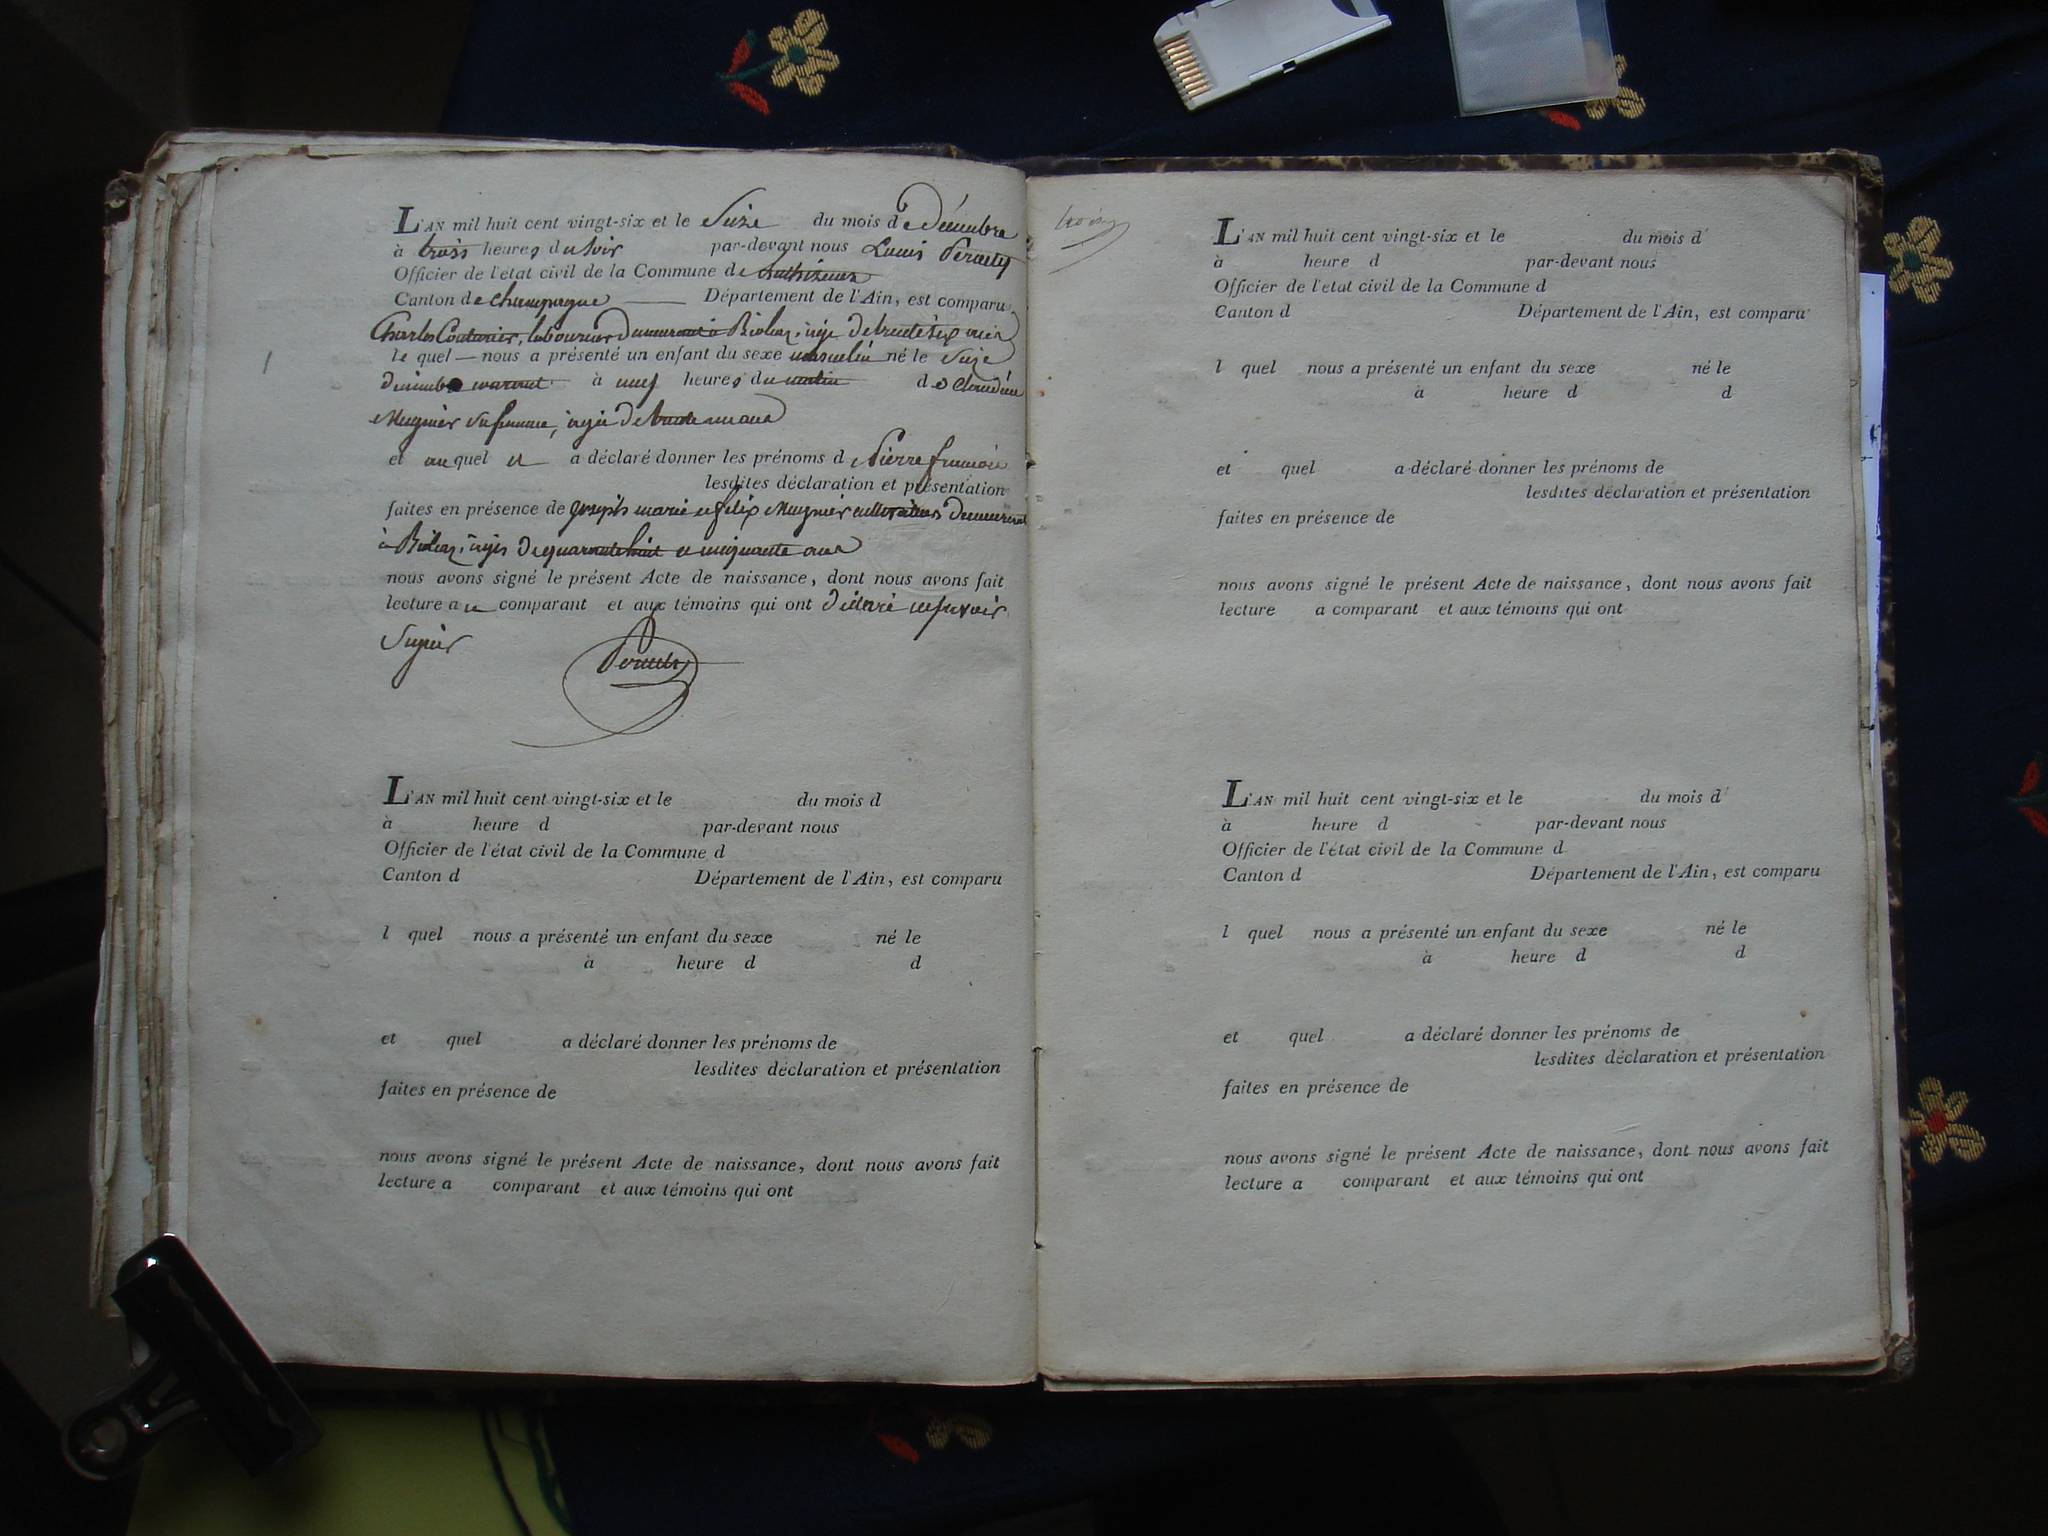 L'AN mil huit cent vingt-six et le Seize du mois de Décembre
à trois heures du soir par-devant nous Louis
Officier de l'état civil de la Commune de
Canton de champagne Département de l'Ain, est comparu
Charles Couturier, laboureur demeurant à agé de trente six ans
le quel nous a présenté un enfant du sexe masculin né le Seize
décembre courant à neuf heures du matin de Claudine
Mugnier sa femme, agée de trente un ans
et auquel il a déclaré donner les prénoms de Pierre françois
lesdites déclaration et présentation
faites en présence de joseph marie et félix Mugnier cultivateurs demeurant
à agés de quarante huit et cinquante ans
nous avons signé le présent Acte de naissance, dont nous avons fait
lecture au comparant et aux témoins qui ont déclaré ne savoir
Signer
L'AN mil huit cent vingt-six et le du mois d
à heure d par-devant nous
Officier de l'état civil de la Commune d
Canton d Département de l'Ain, est comparu
l quel nous a présenté un enfant du sexe né le
à heure d d
et quel a déclaré donner les prénoms de
lesdites déclaration et présentation
faites en présence de
nous avons signé le présent Acte de naissance, dont nous avons fait
lecture a comparant et aux témoins qui ont
L'AN mil huit cent vingt-six et le du mois d
à heure d par-devant nous
Officier de l'état civil de la Commune d
Canton d Département de l'Ain, est comparu
l quel nous a présenté un enfant du sexe né le
à heure d d
et quel a déclaré donner les prénoms de
lesdites déclaration et présentation
faites en présence de
nous avons signé le présent Acte de naissance, dont nous avons fait
lecture a comparant et aux témoins qui ont
L'AN mil huit cent vingt-six et le du mois d
à heure d par-devant nous
Officier de l'état civil de la Commune d
Canton d Département de l'Ain, est comparu
l quel nous a présenté un enfant du sexe né le
à heure d d
et quel a déclaré donner les prénoms de
lesdites déclaration et présentation
faites en présence de
nous avons signé le présent Acte de naissance, dont nous avons fait
lecture a comparant et aux témoins qui ont